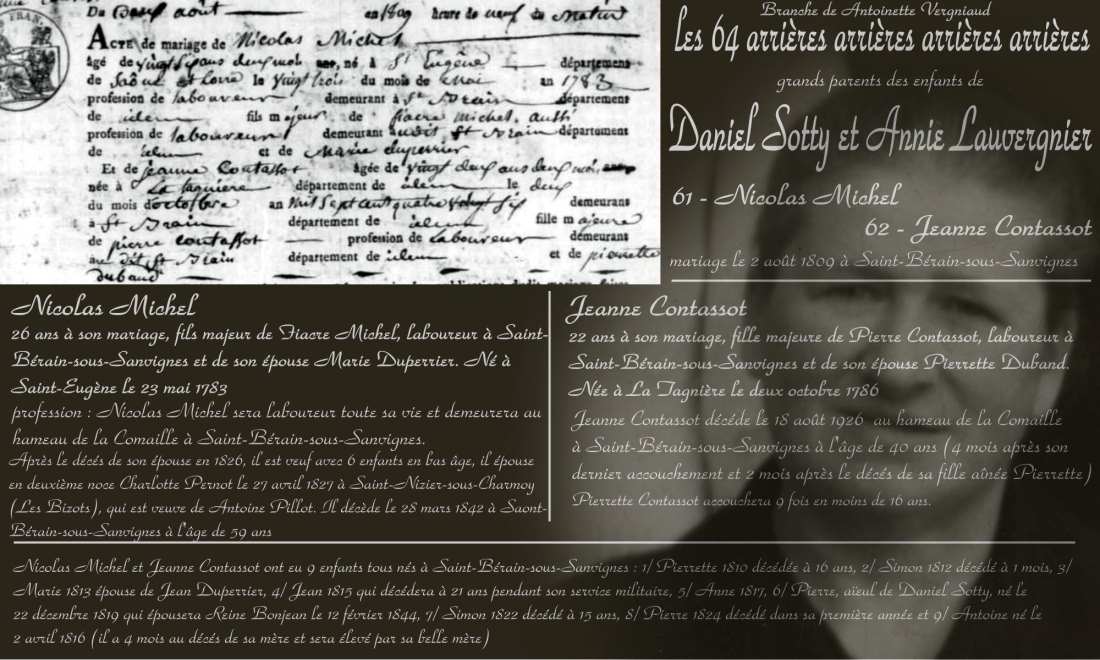 Du Deux août en 1809 heure de neuf du Matin
Acte de mariage de Nicolas Michel
âgé de vingt six ans deux mois né à St Eugène département
de Saône et Loire le vingt trois du mois de Mai an 1783
profession de laboureur demeurant à St Brain département
de idem fils majeur de fiacre michel, aussi
profession de laboureur demeurant audit St Brain département
de idem et de Marie duperrier
Et de jeanne Contassot âgée de vingt deux ans deux moi,
née à La tagniere département de idem le deux
du mois d'octobre an Mil Sept cent quatre vingt Six demeurant
à St Brain département de idem fille majeure
de pierre contassot profession de Laboureur demeurant
au dit St Brain département de idem et de pierrette
duband
Branche de Antoinette Vergniaud
les 64 arrières arrières arrières arrières
grands parents des enfants de
Daniel Sotty et Annie Lauvergnier
61 - Nicolas Michel
62 - Jeanne Contassot
mariage le 2 août 1809 à Saint-Bérain-sous-Sanvignes
Nicolas Michel
26 ans à son mariage, fils majeur de Fiacre Michel, laboureur à Saint-
Bérain-sous-Sanvignes et de son épouse Marie Duperrier. Né à
Saint-Eugène le 23 mai 1783
profession : Nicolas Michel sera laboureur toute sa vie et demeurera au
hameau de la Comaille à Saint-Bérain-sous-Sanvignes.
Après le décés de son épouse en 1826, il est veuf avec 6 enfants en bas âge, il épouse
en deuxième noce Charlotte Pernot le 27 avril 1827 à Saint-Nizier-sous-Charmoy
(Les Bizots), qui est veuve de Antoine Pillot. Il décède le 28 mars 1842 à Saont-
Bérain-sous-Sanvignes à l'âge de 59 ans
Jeanne Contassot
22 ans à son mariage, fille majeure de Pierre Contassot, laboureur à
Saint-Bérain-sous-Sanvignes et de son épouse Pierrette Duband.
Née à La Tagnière le deux octobre 1786
Jeanne Contassot décéde le 18 août 1926 au hameau de la Comaille
à Saint-Bérain-sous-Sanvignes à l'âge de 40 ans (4 mois après son
dernier accouchement et 2 mois après le décés de sa fille aînée Pierrette)
Pierrette Contassot accouchera 9 fois en moins de 16 ans.
Nicolas Michel et Jeanne Contassot ont eu 9 enfants tous nés à Saint-Bérain-sous-Sanvignes : 1/ Pierrette 1810 décédée à 16 ans, 2/ Simon 1812 décédé à 1 mois, 3/
Marie 1813 épouse de Jean Duperrier, 4/ Jean 1815 qui décédera à 21 ans pendant son service militaire, 5/ Anne 1817, 6/ Pierre, aïeul de Daniel Sotty, né le
22 décembre 1819 qui épousera Reine Bonjean le 12 février 1844, 7/ Simon 1822 décédé à 15 ans, 8/ Pierre 1824 décédé dans sa première année et 9/ Antoine né le
2 avril 1816 (il a 4 mois au décés de sa mère et sera élevé par sa belle mère)